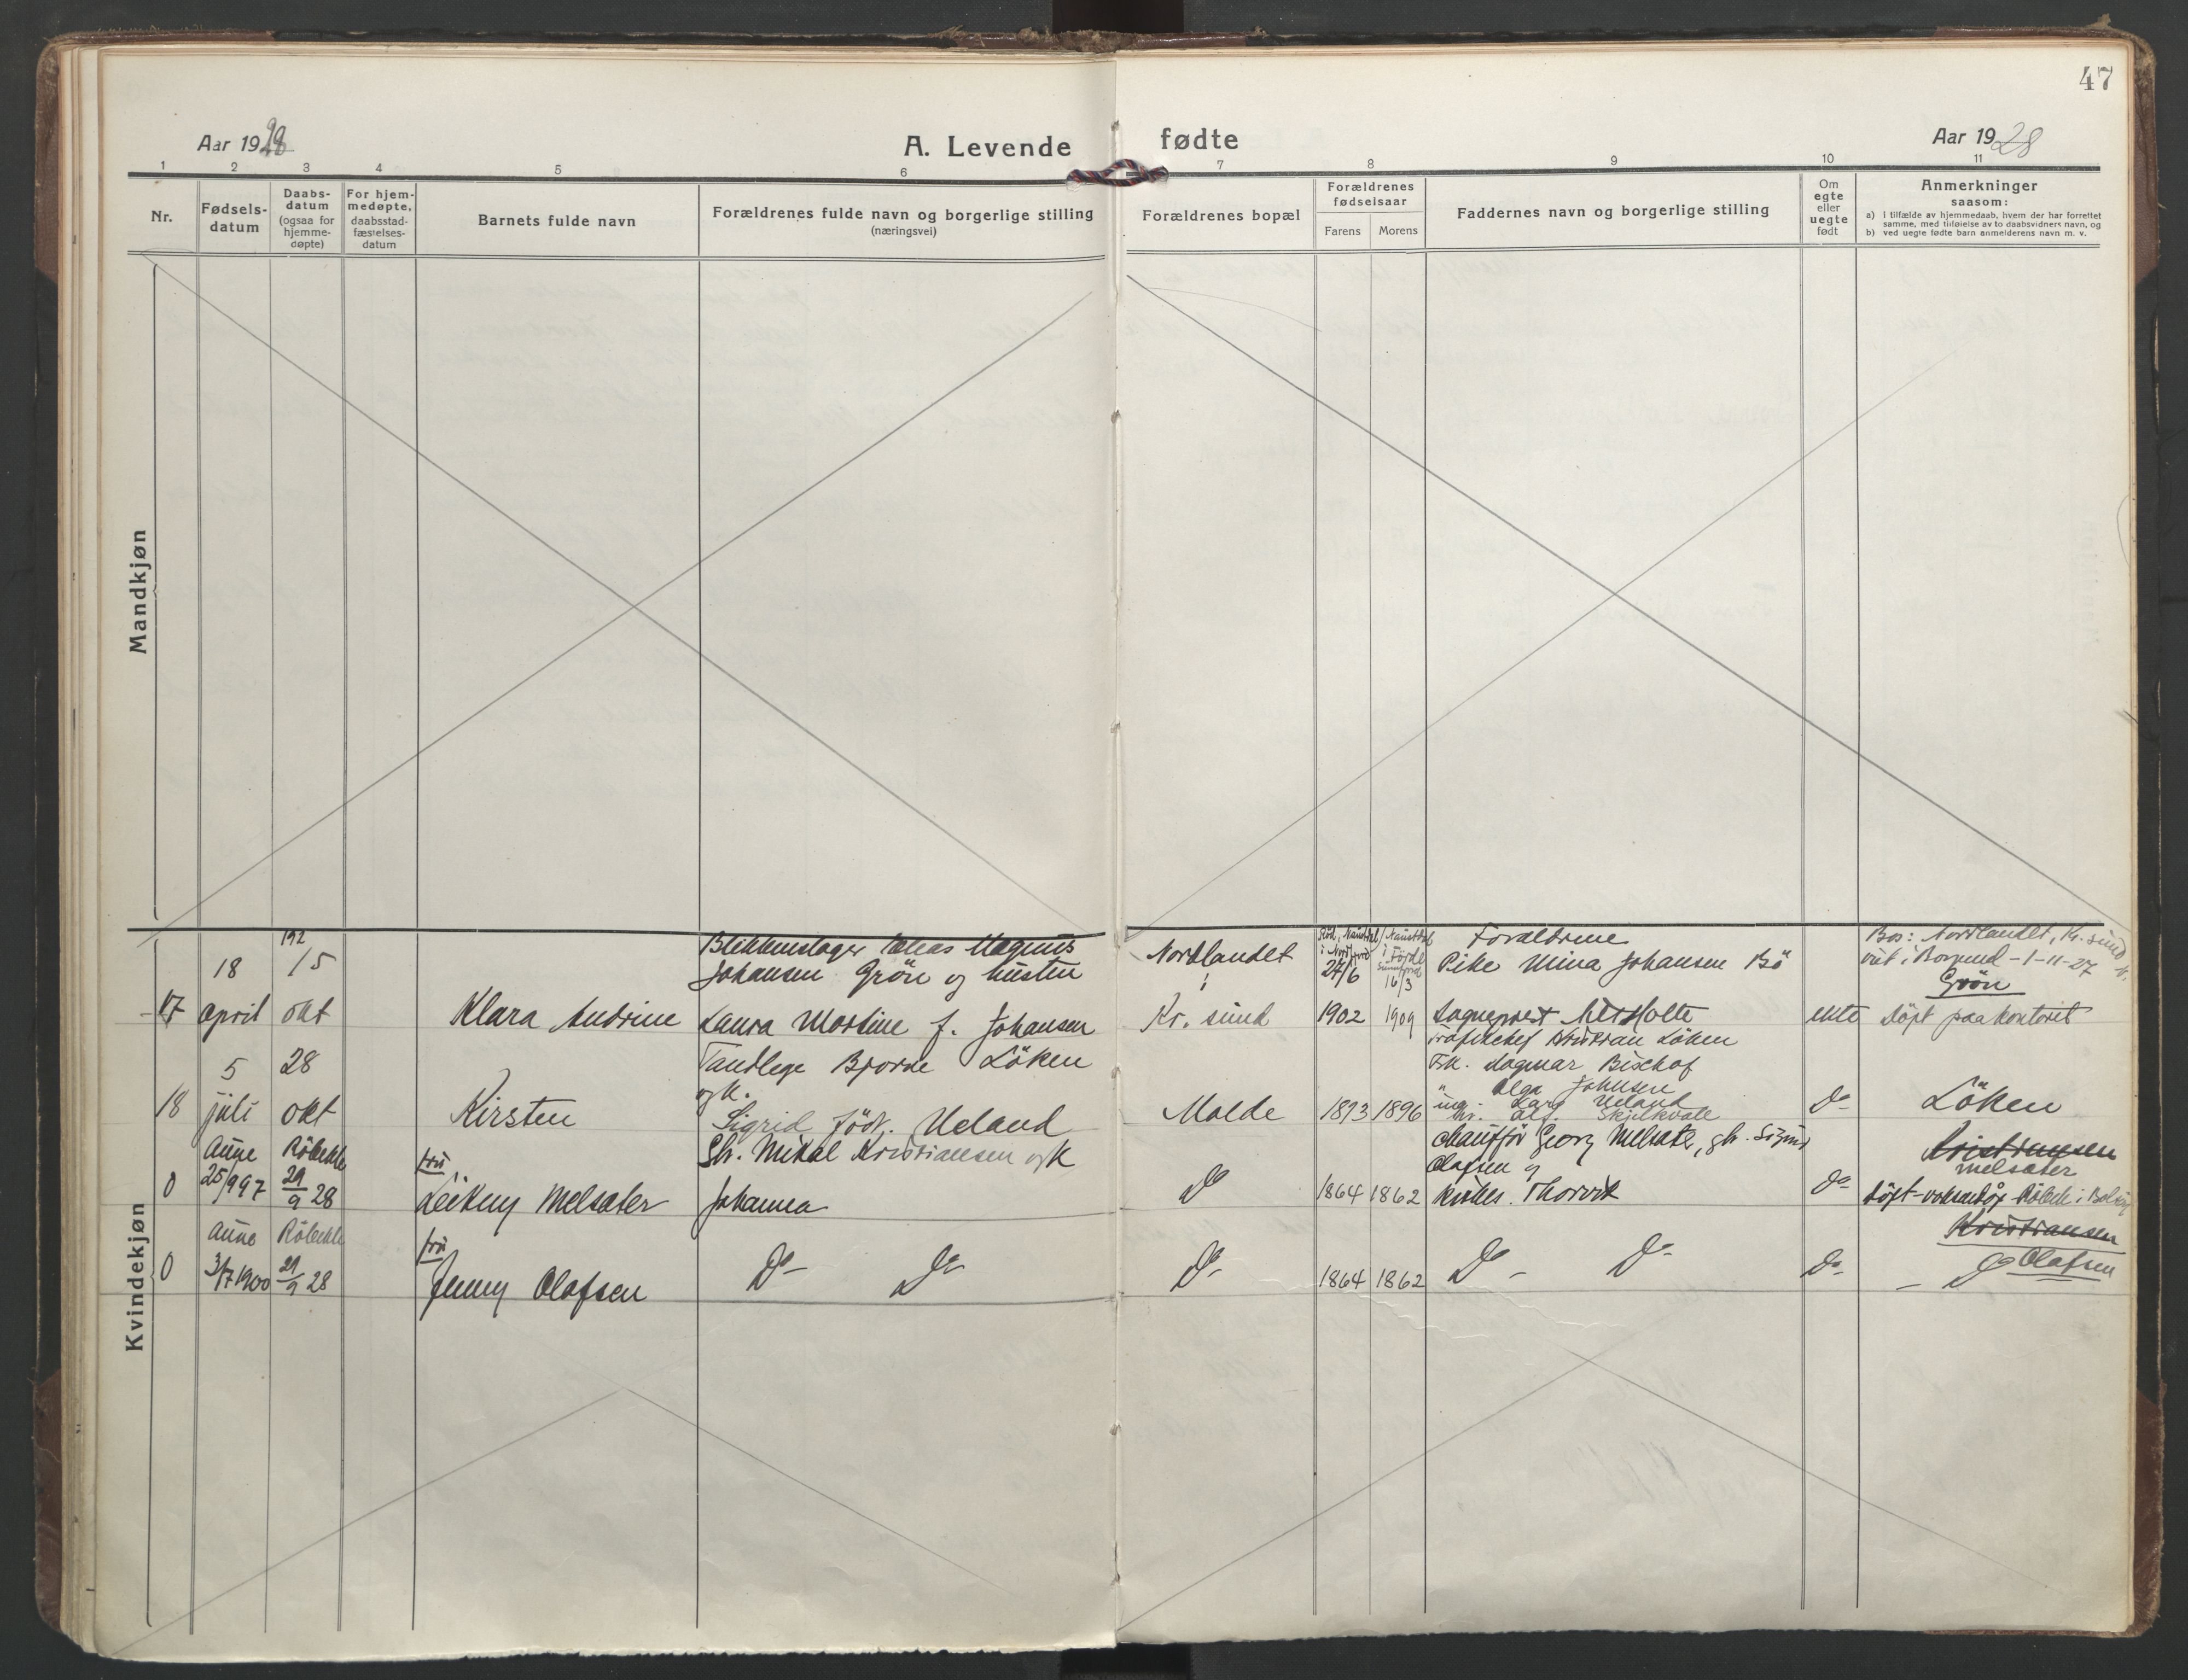 47
Aar 1928
A. Levende fødte
Aar 1928
1 2 3 4 5 6 7 8 9 10 11
Nr.
Fødsels-
datum
Daabs-
datum
(ogsaa for
hjemme-
døpte)
For hjem-
medøpte,
daabsstad-
fæstelses-
datum
Barnets fulde navn
Forældrenes fulde navn og borgerlige stilling
(næringsvei)
Forældrenes bopæl
Forældrenes
fødselsaar
Farens Morens
Faddernes navn og borgerlige stilling
Om
egte
eller
uegte
født
Anmerkninger
saasom:
a) i tilfælde av hjemmedaab, hvem der har forrettet
samme, med tilføielse av to daabsvidners navn, og
b) ved uegte fødte barn anmelderens navn m. v.
Mandkjøn
Kvindekjøn
17
18
april
192
15
okt
Klara Andrine
Blikkenslager Magnus
Johansen Grön og hustru
Laura Martine f. Johansen
Nordlandet
Kr. sund
27/6
1902
16/3
1909
Foraldrene
Pike Mina Johansen Bö
Sogneprest Holte
ekte
Bos: Nordlandet, Kr. sund N.
viet i Borgund - 1-11-27
Grön
Döpt paa kontoret
18
5
juli
28
okt
Kirsten
Tandlege Bjarne Löken
og h.
Sigrid född. Ueland
Malde
1893 1896
Kristian Löken
Frk. Dagmar Bischof
" Olga Johnsen
ing. Lars Ueland
Skjelkvale
Do-
Löken
0
25/9 97
Röbekk
29/9 28
fru
Leikny Melsæter
Gb. Mikal Kristiansen og k
Johanna
Do
1864 1862
Chaufför Georg Melsæter, gb. Sigurd
Olafsen og
kirkes. Thorvik
Do-
Kristiansen
Melsæter
Röbekk i Bolsöy
0
3/7 1900
Röbekk
29/9 28
fru
Jenny Olafsen
Do- Do-
Do-
1864 1862
Do - Do-
Do-
Kristiansen
- Do Olafsen